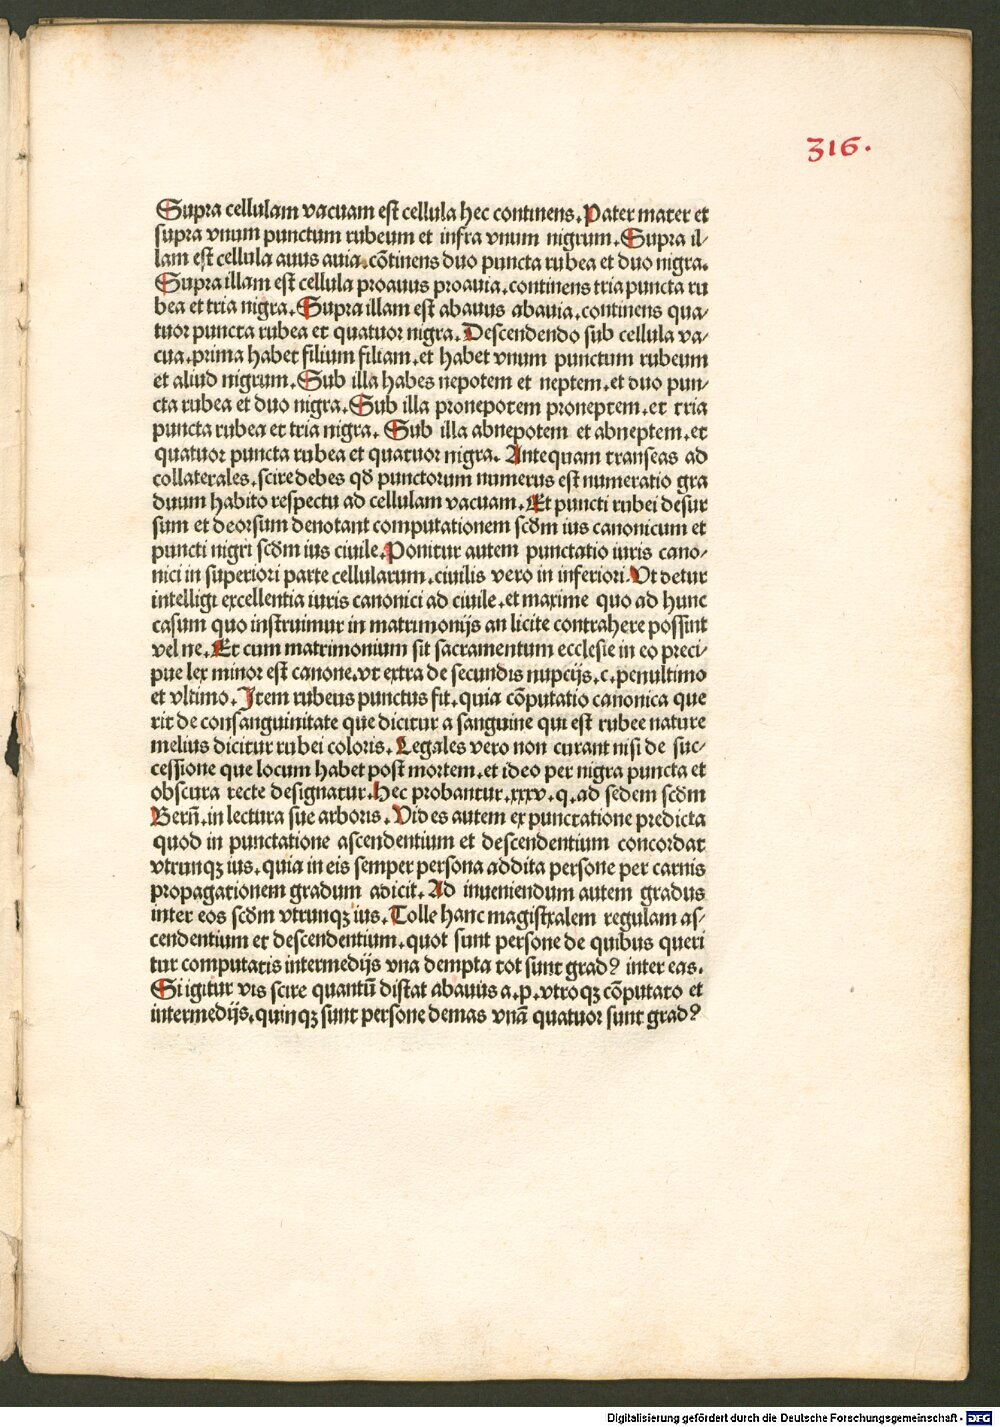 316.
Supra cellulam vacuam est cellula hec continens. Pater mater et
supra vnum punctum rubeum et infra vnum nigrum. Supra il-
lam est cellula auus auia. cōtinens duo puncta rubea et duo nigra.
Supra illam est cellula proauus proauia. continens tria puncta ru
bea et tria nigra. Supra illam est abauus abauia. continens qua-
tuor puncta rubea et quatuor nigra. Descendendo sub cellula va-
cua. prima habet filium filiam. et habet vnum punctum rubeum
et aliud nigrum. Sub illa habes nepotem et neptem. et duo pun-
cta rubea et duo nigra. Sub illa pronepotem proneptem. et tria
puncta rubea et tria nigra. Sub illa abnepotem et abneptem. et
quatuor puncta rubea et quatuor nigra. Antequam transeas ad
collaterales. scire debes qd̄ punctorum numerus est numeratio gra
duum habito respectu ad cellulam vacuam. Et puncti rubei desur
sum et deorsum denotant computationem scd̄m ius canonicum et
puncti nigri scd̄m ius ciuile. Ponitur autem punctatio iuris cano-
nici in superiori parte cellularum. ciuilis vero in inferiori. Vt detur
intelligi excellentia iuris canonici ad ciuile. et maxime quo ad hunc
casum quo instruimur in matrimonijs an licite contrahere possint
vel ne. Et cum matrimonium sit sacramentum ecclesie in eo preci-
pue lex minor est canone. vt extra de secundis nupcijs. c. penultimo
et vltimo. Item rubeus punctus fit. quia cōputatio canonica que
rit de consanguinitate que dicitur a sanguine qui est rubee nature
melius dicitur rubei coloris. Legales vero non curant nisi de suc-
cessione que locum habet post mortem. et ideo per nigra puncta et
obscura recte designatur. Hec probantur. xxxv. q. ad sedem scd̄m
Berñ. in lectura sue arboris. Vides autem ex punctatione predicta
quod in punctatione ascendentium et descendentium concordat
vtrunqꝫ ius. quia in eis semper persona addita persone per carnis
propagationem gradum adicit. Ad inueniendum autem gradus
inter eos scd̄m vtrunqꝫ ius. Tolle hanc magistralem regulam as-
cendentium et descendentium. quot sunt persone de quibus queri
tur computatis intermedijs vna dempta tot sunt grad? inter eas.
Si igitur vis scire quantū distat abauus a. p. vtroqꝫ cōputato et
intermedijs. quinqꝫ sunt persone demas vnā quatuor sunt grad?
Digitalisierung gefördert durch die Deutsche Forschungsgemeinschaft - DFG